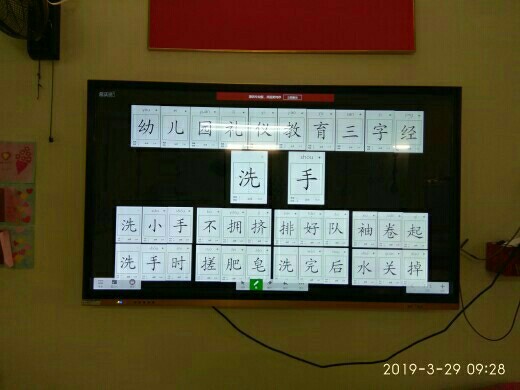 幼儿园礼仪教育三字经
洗手
洗小手 不拥挤 排好队 袖卷起
洗手时 搓肥皂 洗完后 水关掉
2019-3-29 09:28